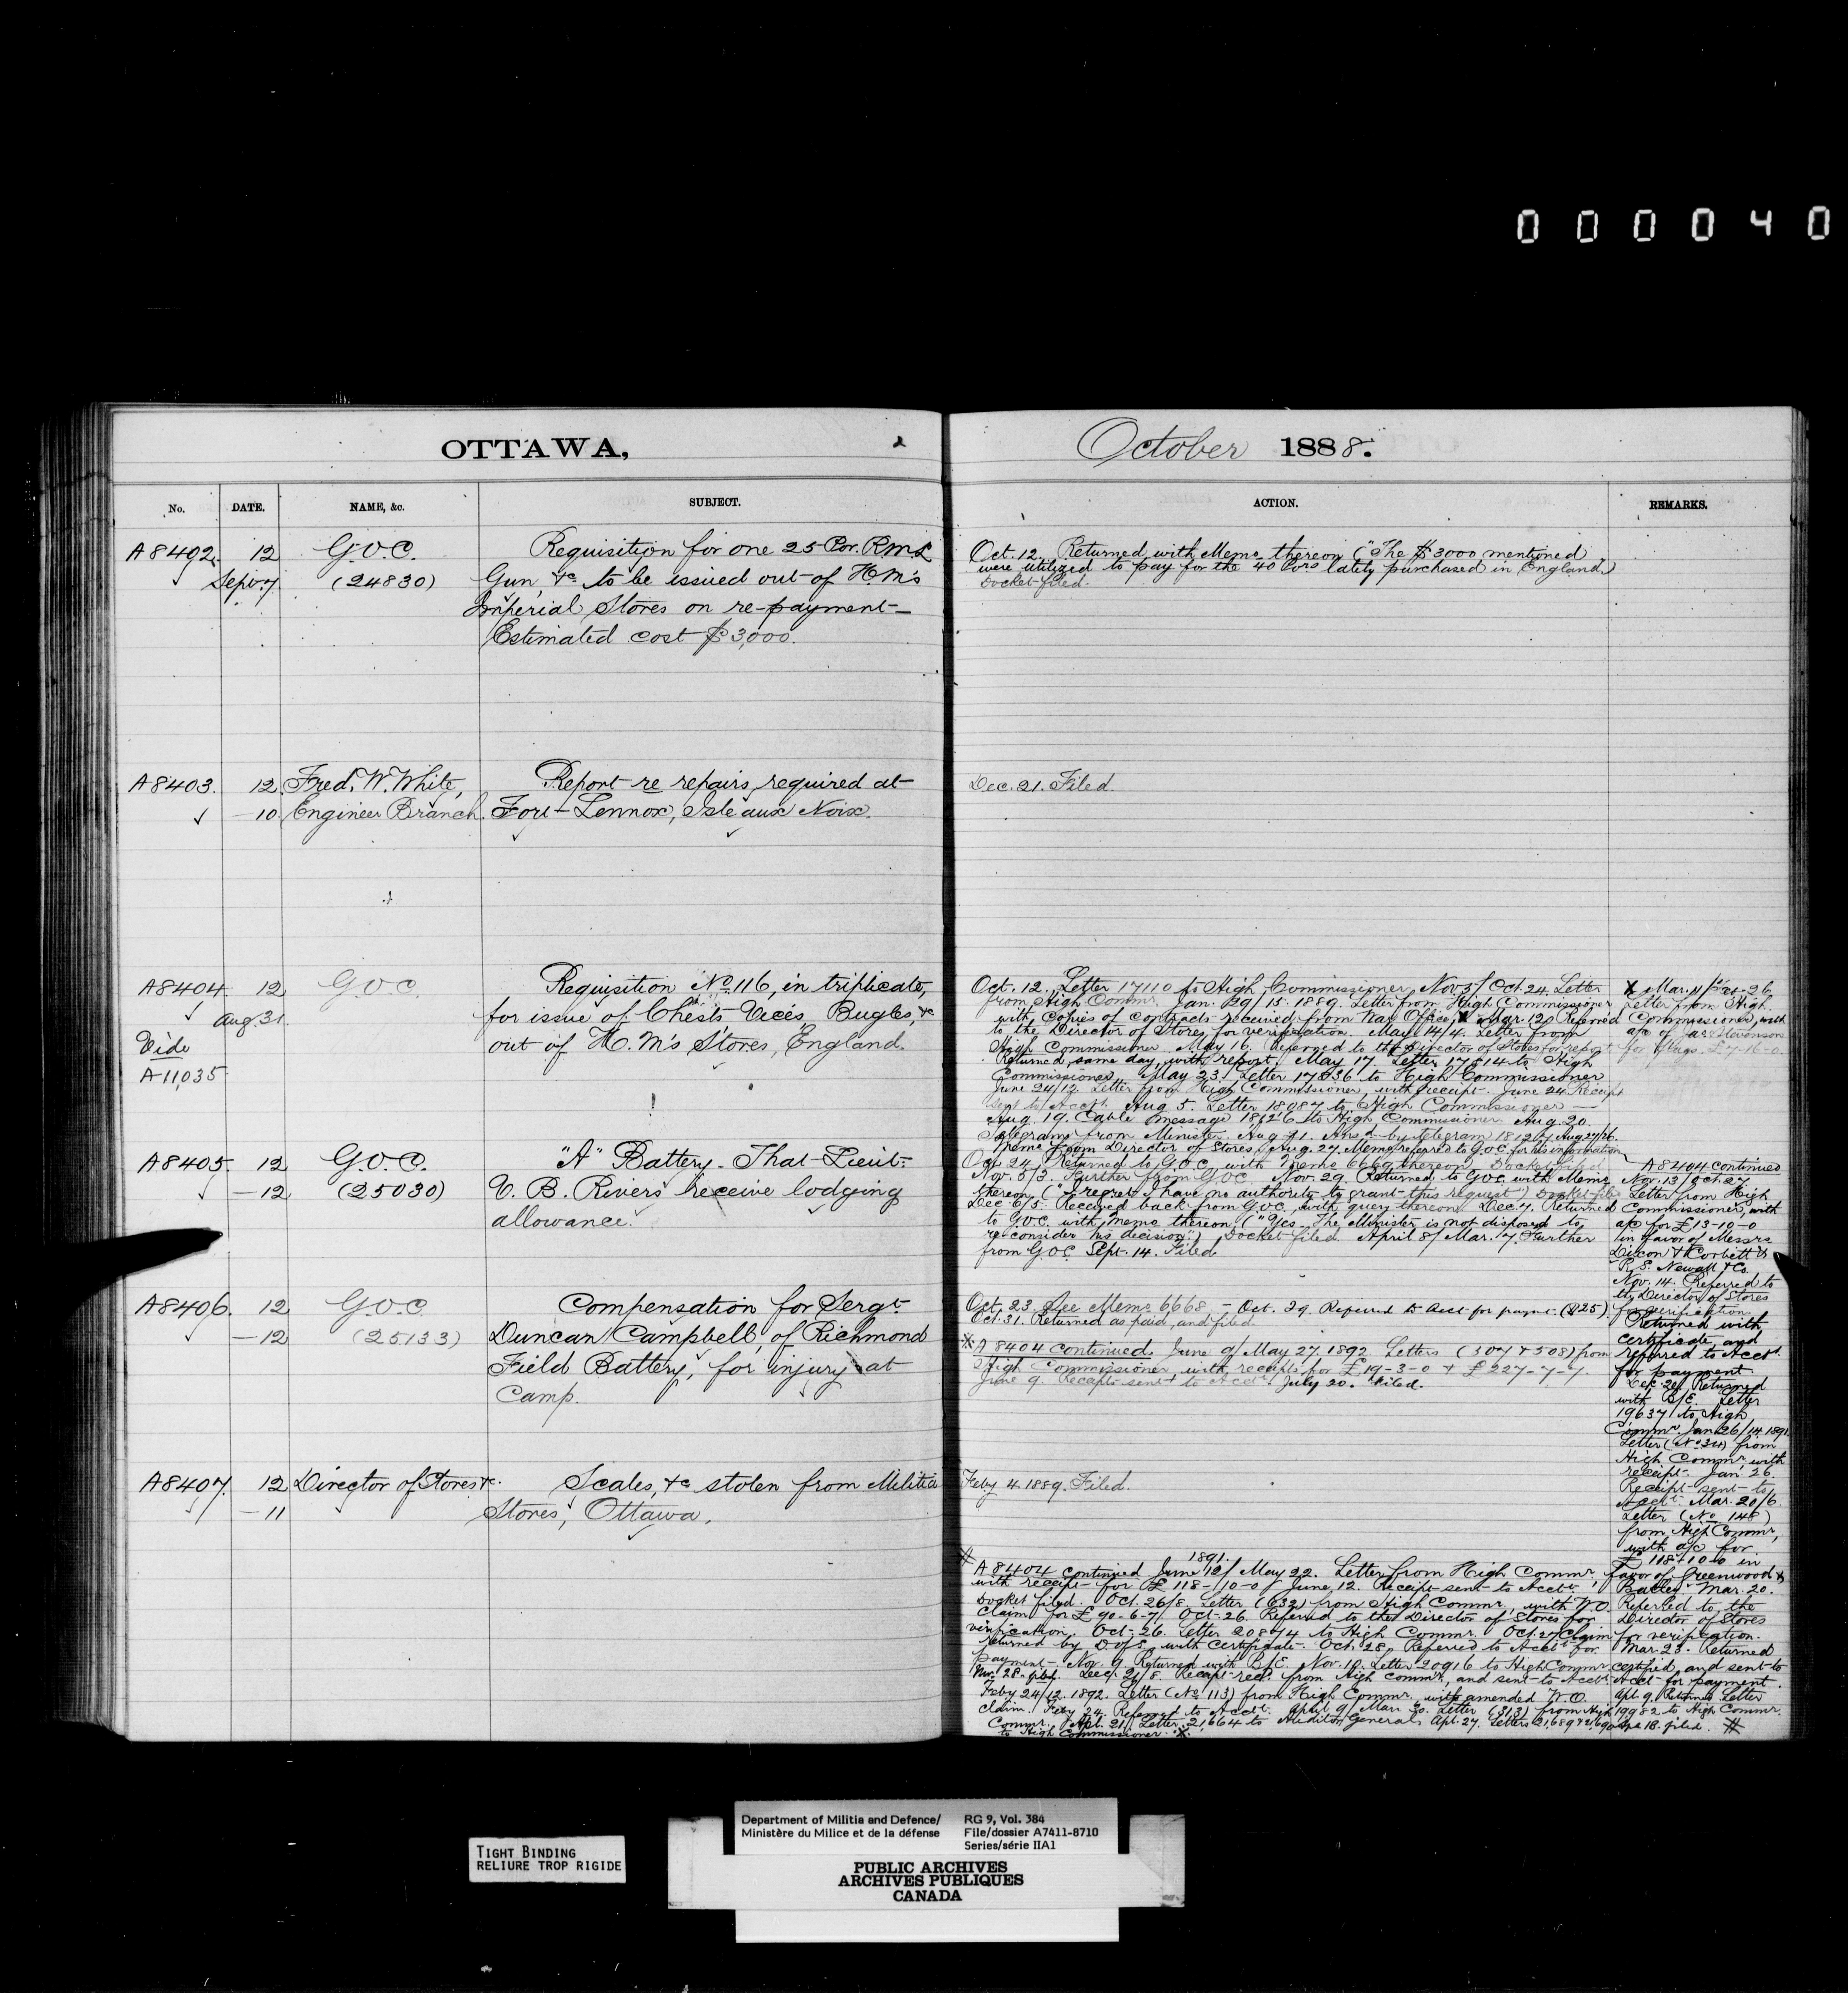 000040
OTTAWA,
No. DATE. NAME, &c. SUBJECT.
A8402. 12 G.O.C. Requisition for one 25 Por. R.M.L
Sept. 7 (24830) Gun, &c to be issued out of H.M's
Imperial Stores on re-payment—
Estimated cost $3,000.
A8403. 12. Fred. W. White, Report re repairs required at
—10. Engineer Branch. Fort Lennox, Isle aux Noix.
A8404. 12 G.O.C. Requisition No. 116, in triplicate,
Aug. 31 for issue of Chests Vices, Bugles, &c
Vide out of H.M's Stores, England.
A11,035
A8405. 12 G.O.C. "A" Battery - That Lieut.
—12 (25030) V. B. Rivers receive lodging
allowance.
A8406. 12 G.O.C. Compensation for Sergt.
—12 (25133) Duncan Campbell, of Richmond
Field Battery, for injury at
Camp.
A8407. 12 Director of Stores &c. Scales, &c stolen from Militia
—11 Stores, Ottawa.
October 1888.
ACTION. REMARKS.
Oct. 12. Returned with Memo thereon ("The $3000 mentioned
were utilized to pay for the 40 Pors lately purchased in England.)
Docket filed.
Dec. 21. Filed.
Oct. 12. Letter 17110 to High Commissioner, Nov 5/ Oct. 24. Letter
from High Commr. Jan. 29/15. 1889. Letter from High Commissioner
with Copies of contracts received from War Office, X Mar. 12 Referred
to the Director of Stores for verification. May 14/4. Letter from
High Commissioner. May 16. Referred to the Director of Stores for report
Returned same day, with report. May 17 Letter 17814 to High
Commissioner. May 23. Letter 17836 to High Commissioner
June 24/12 Letter from High Commissioner, with receipt. June 24 Receipt
sent to Acct. Aug 5. Letter 18087 to High Commissioner—
Aug. 19. Cable message 18126 to High Commissioner. Aug. 20.
Telegram from Minister. Aug 21. Ansd by telegram Aug 27/26.
Memo from Director of Stores. Aug. 27. Memo referred to G.O.C. for his information
Oct. 24. Returned to G.O.C. with Memo 6669 thereon. Docket filed
Nov. 5/3. Further from G.O.C. Nov. 29. Returned to G.O.C. with Memo
thereon ("I regret I have no authority to grant this request") Docket filed
Dec 6/5. Received back from G.O.C. with query thereon. Dec. 7. Returned
to G.O.C. with memo thereon ("Yes. The Minister is not disposed to
re-consider his decision") Docket filed April 8/ Mar. 7. Further
from G.O.C. Sept. 14. Filed
Oct. 23. See Memo 6668. - Oct. 29. Referred to Acct for paymt. ($25).
Oct. 31. Returned as paid, and filed.
X A8404 continued. June 9/ May 27, 1892 Letters (507 & 508) from
High Commissioner with receipts for £19-3-0 & £227-7-7.
June 9. Receipts sent to Acct. July 20. Filed.
Feby 4. 1889. Filed.
# 1891.
A8404 continued June 12/ May 22. Letter from High Commr.
with receipt for £118-10-0/ June 12. Receipt sent to Acctt.
Docket filed. Oct. 26/8. Letter (632) from High Commr, with W.O.
claim for £90-6-7. Oct. 26. Referred to the Director of Stores for
verification. Oct. 26. Letter 20874 to High Commr. Oct. 27 Claim
returned by D of S. with certificate. Oct. 28. Referred to Acctt. for
payment. Nov. 9. Returned with B/E. Nov. 10. Letter 20916 to High Commr.
Nov. 28. filed. Dec. 21/8. Receipt recd. from High Commr, and sent to Acctt.
Feby 24/12. 1892. Letter (No. 113) from High Commr. with amended W.O.
claim. Feby 24. Referred to Acctt. April 9/ Mar. 30. Letter (313) from High
Commr. Apl. 21. Letter 21,664 to Auditor General. Apl. 27. Letters
to High Commissioner. X
X Mar. 11/ Feby. 26
Letter from High
Commissioner, with
a/c of
for
A8404 continued
Nov. 13/ Oct. 27
Letter from High
Commissioner, with
a/c for £13-10-0
in favor of Messrs
Dixon & Corbitt &
R. S. Newall & Co.
Nov. 14. Referred to
the Director of Stores
for verification.
Returned with
certificate and
referred to Acctt.
for payment
Dec. 20. Returned
with B/E. Letter
19637 to High
Commr. Jan 26/14 1891
Letter (No. 34) from
High Commr. with
receipt. Jan 26.
Receipt sent to
Acctt. Mar. 20/6.
Letter (No. 148)
from High Commr,
with a/c for
£118-10-0 in
favor of Greenwood &
Batley. Mar. 20.
Referred to the
Director of Stores
for verification.
Mar. 23. Returned
certified, and sent to
Acct. for payment.
Apl. 9. Returned Letter
19982 to High Commr.
Apl 18. filed. #
TIGHT BINDING
RELIURE TROP RIGIDE
Department of Militia and Defence/
Ministère du Milice et de la défense
RG 9, Vol. 384
File/dossier A7411-8710
Series/série IIA1
PUBLIC ARCHIVES
ARCHIVES PUBLIQUES
CANADA